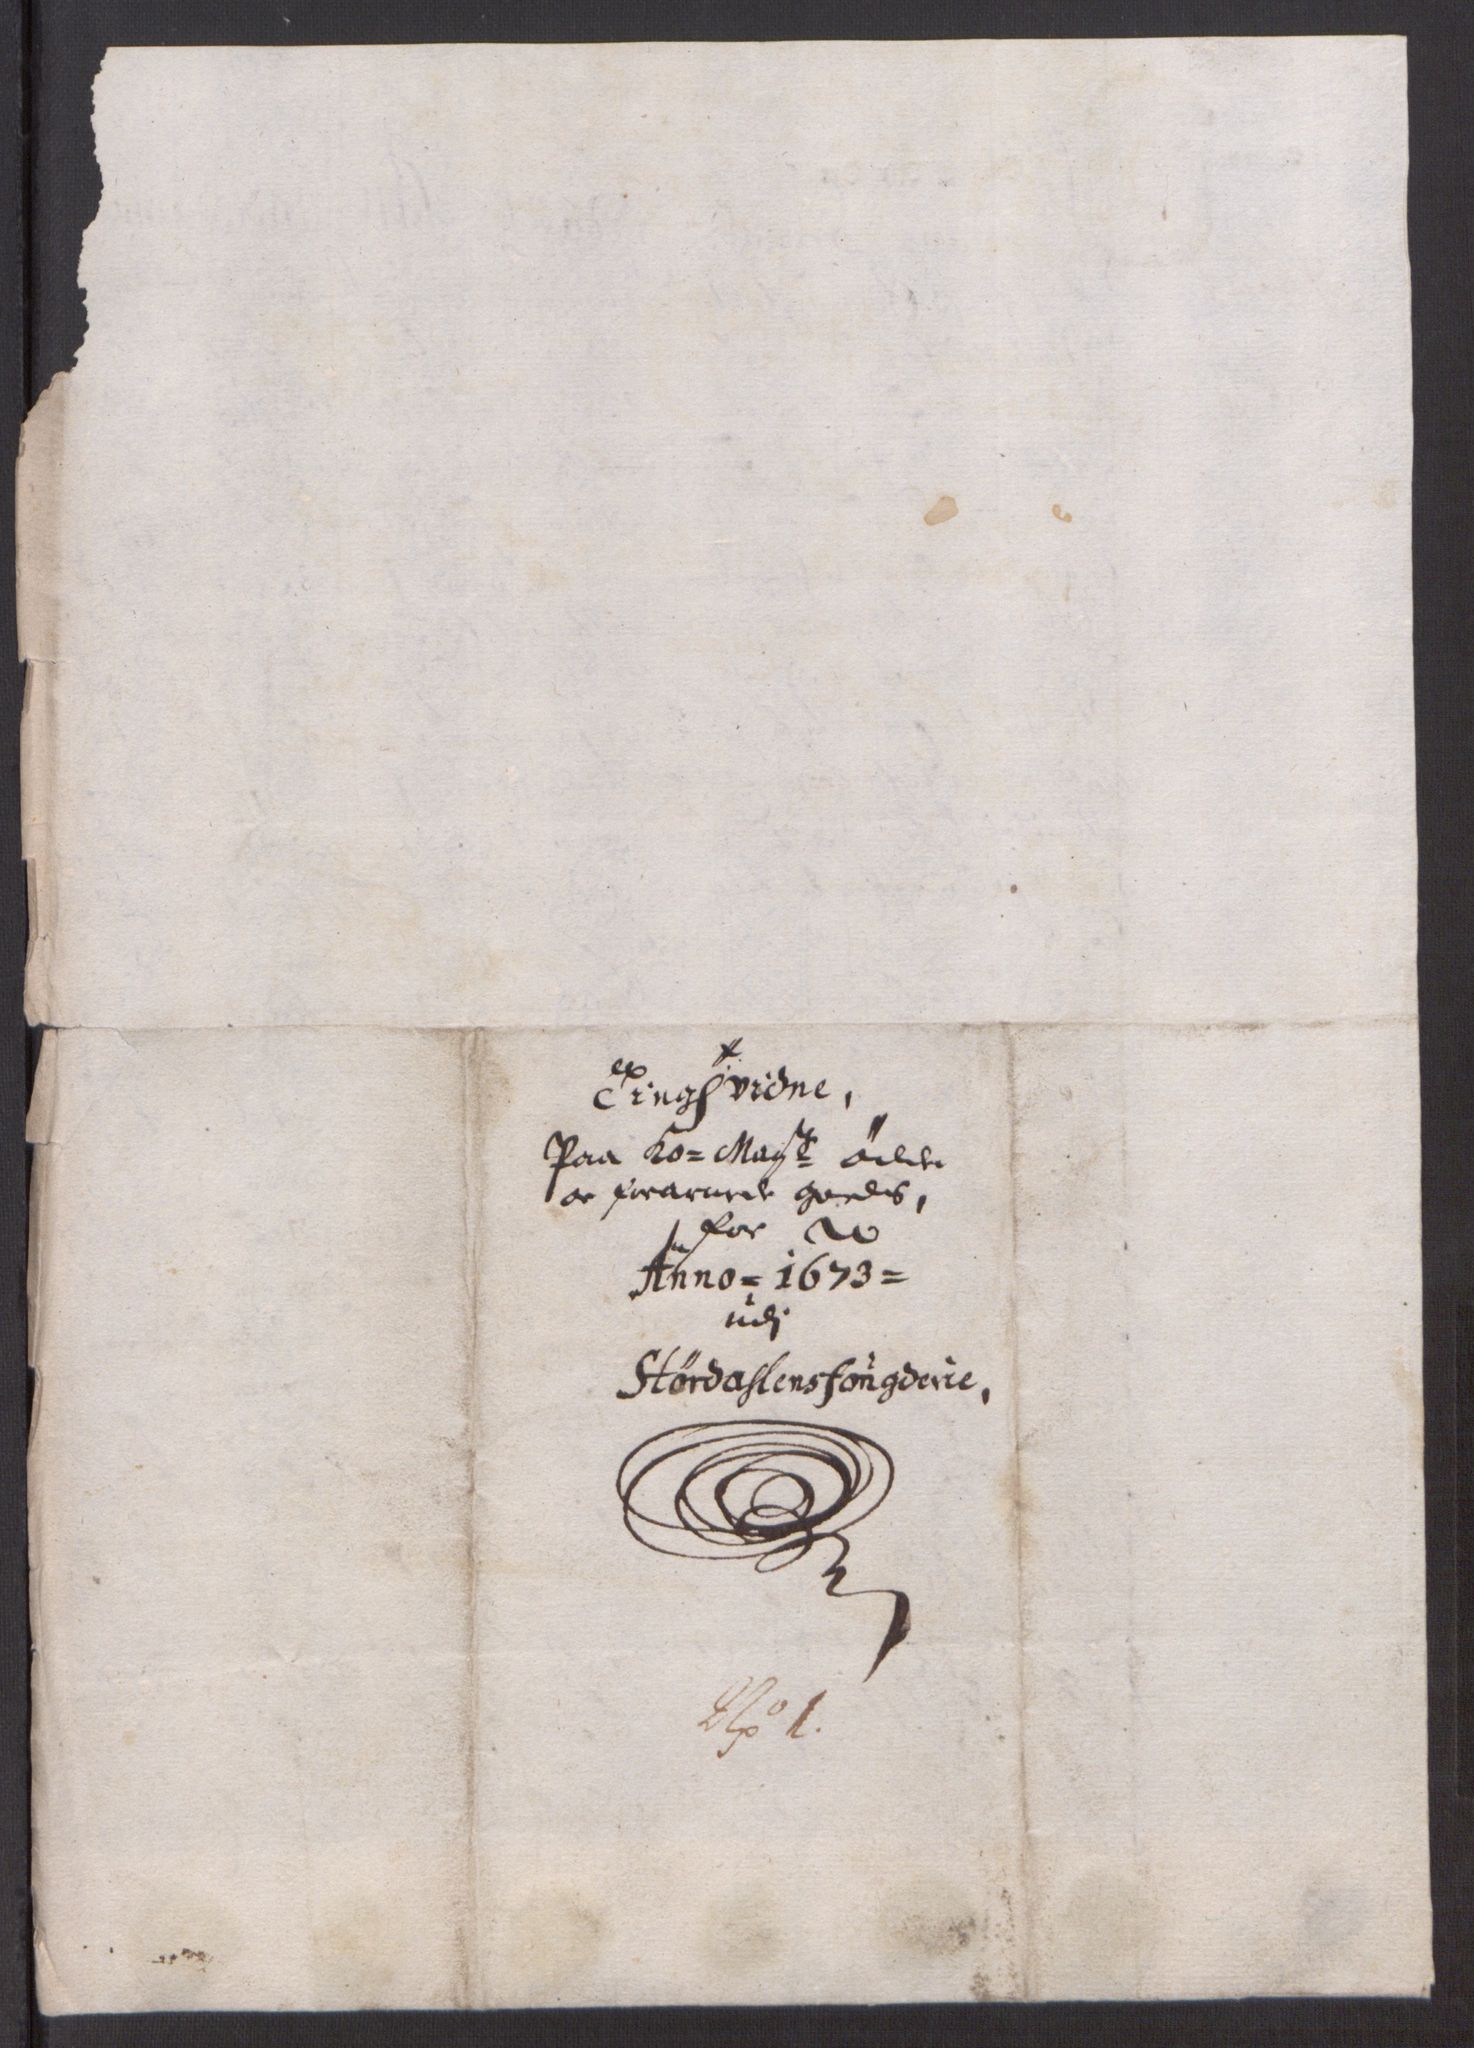 Tingsvidne,
Paa Ko= Maytz öede
oc forarmede goeds,
for
Anno= 1673=
udj
Stördahlens fougderie,
No 1.